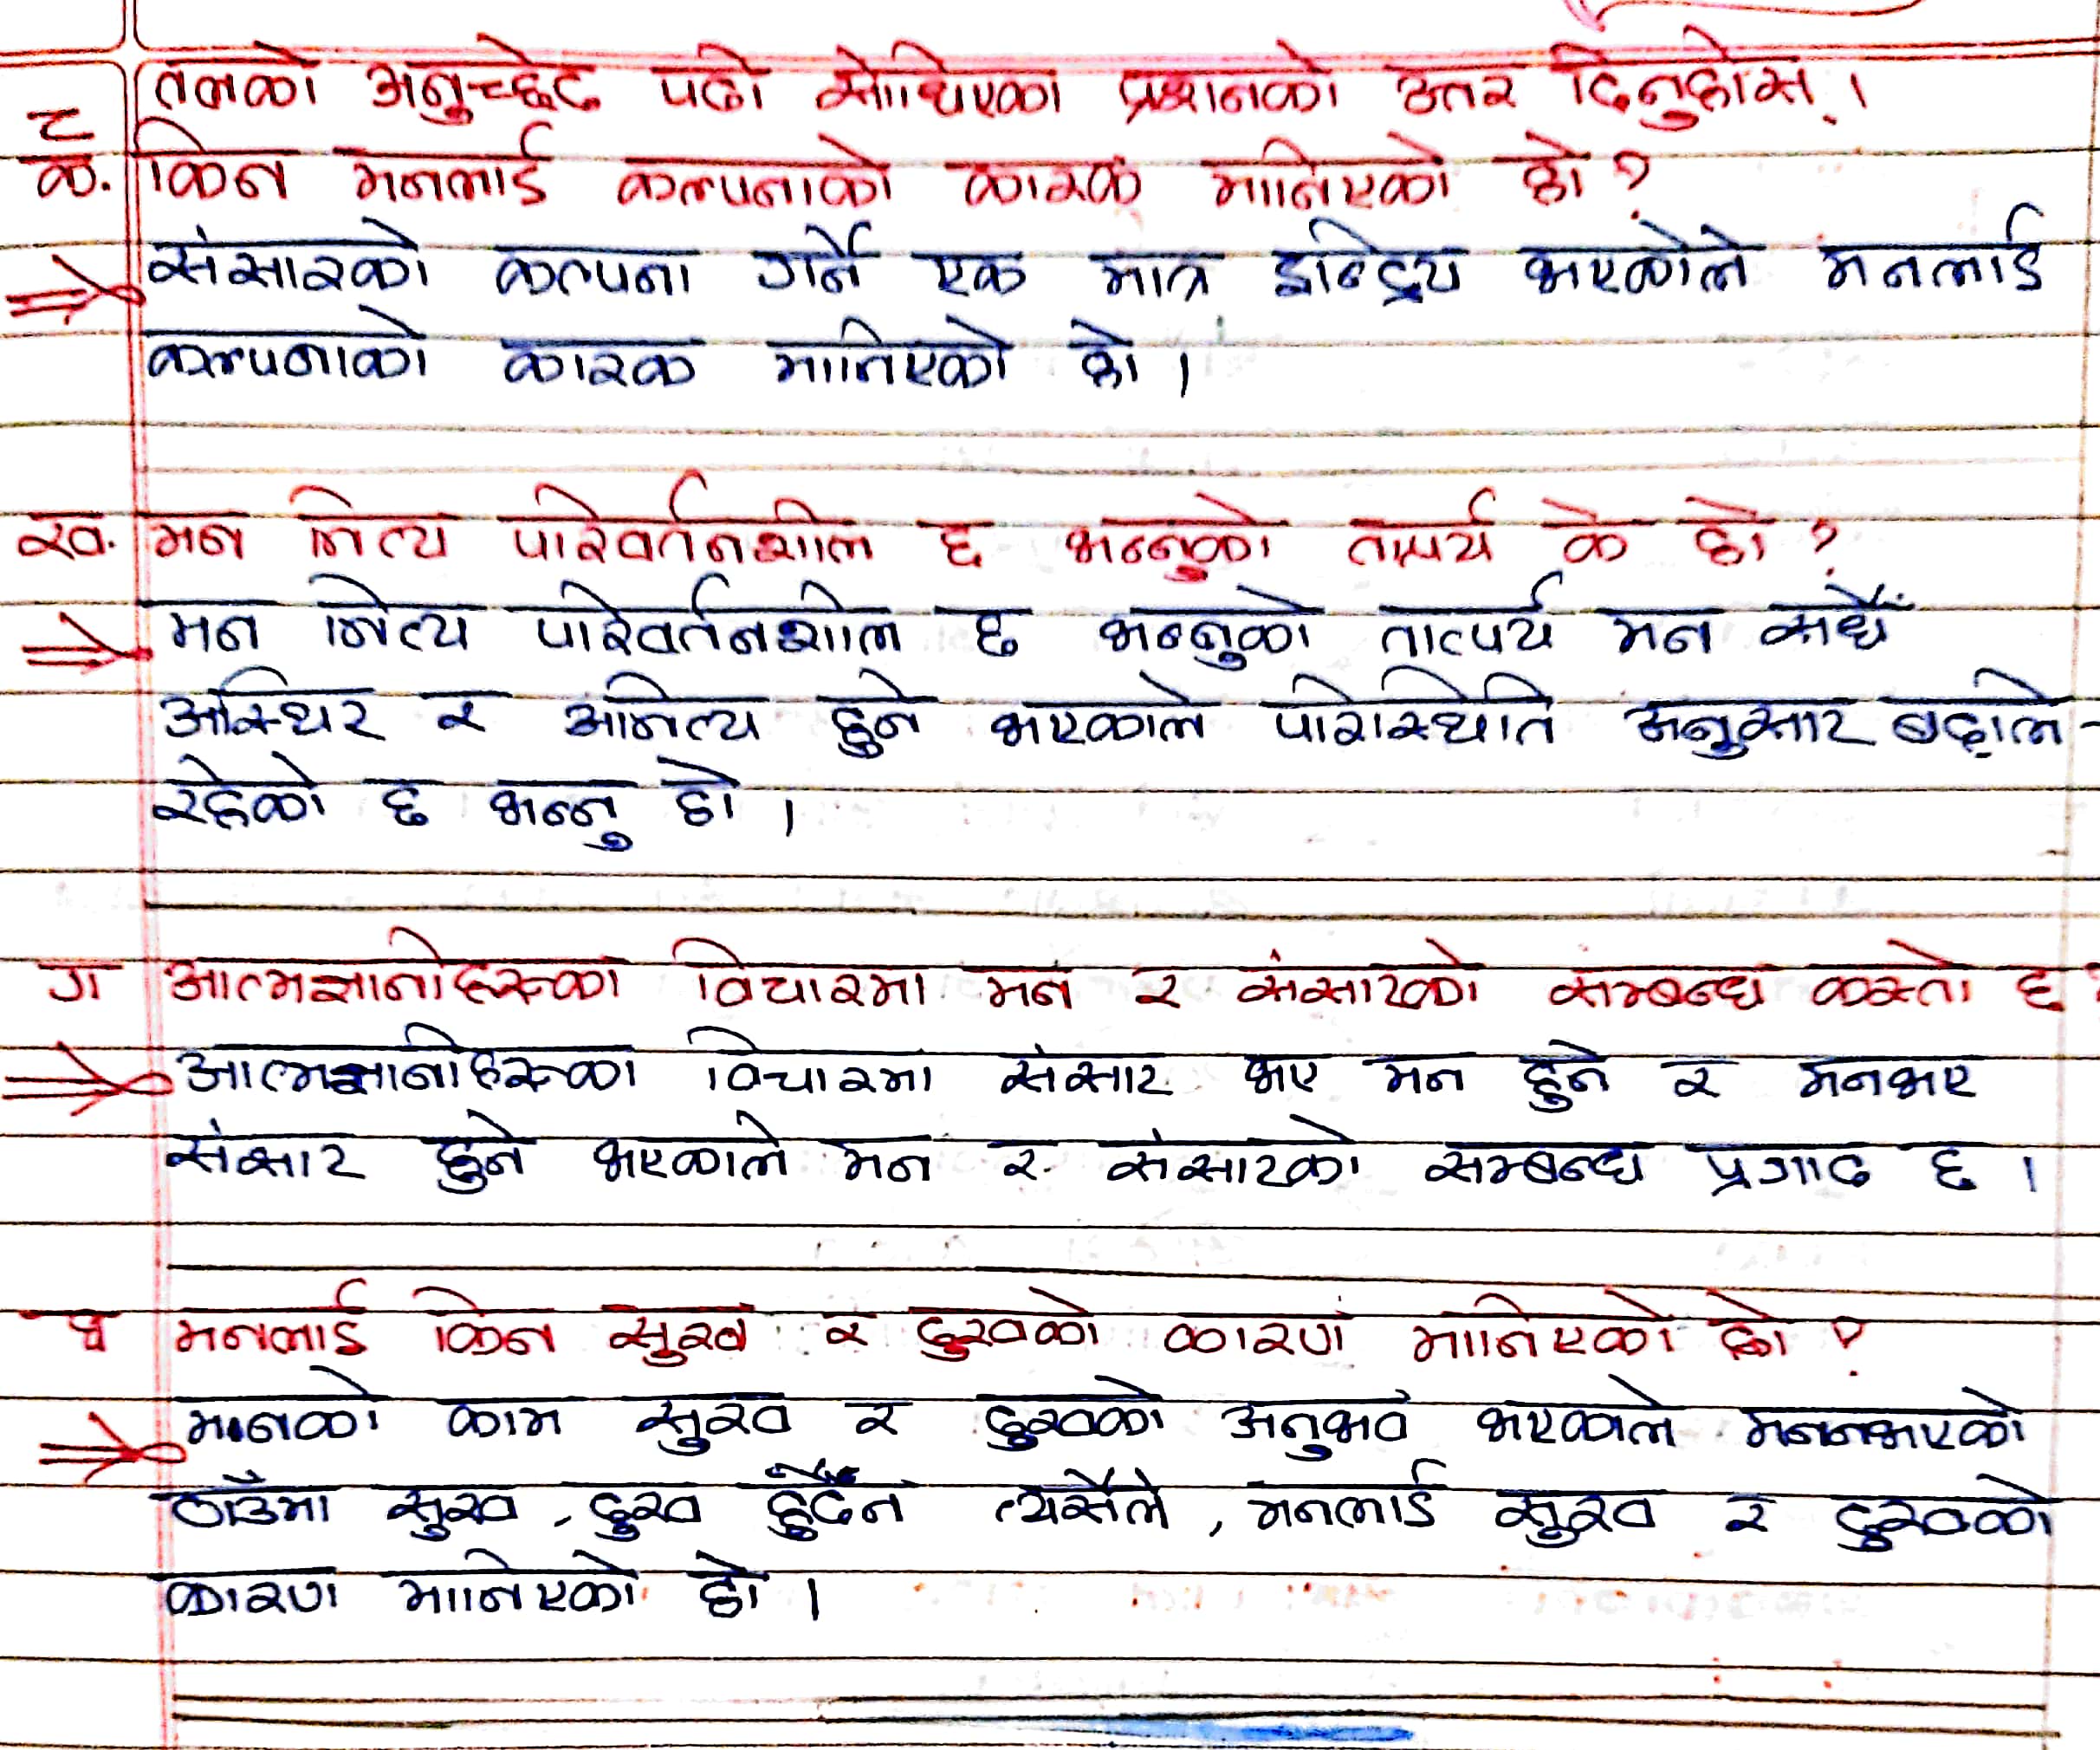 ८ तलको अनुच्छेद पढी सोधिएका प्रश्नको उत्तर दिनुहोस् ।
क. किन मनलाई कल्पनाको कारक मानिएको हो ?
⇒ संसारको कल्पना गर्ने एक मात्र इन्द्रिय भएकोले मनलाई
कल्पनाको कारक मानिएको हो ।
ख. मन नित्य परिवर्तनशील छ भन्नुको तात्पर्य के हो ?
⇒ मन नित्य परिवर्तनशील छ भन्नुको तात्पर्य मन सधैँ
अस्थिर र अनित्य हुने भएकाले परिस्थिति अनुसार बदलि-
रहेको छ भन्नु हो ।
ग आत्मज्ञानीहरूका विचारमा मन र संसारको सम्बन्ध कस्तो छ ?
⇒ आत्मज्ञानीहरूका विचारमा संसार भए मन हुने र मनभए
संसार हुने भएकाले मन र संसारको सम्बन्ध प्रगाढ छ ।
घ मनलाई किन सुख र दुखको कारण मानिएको हो ?
⇒ मनको काम सुख र दुखको अनुभव भएकाले मननभएको
ठाउँमा सुख, दुख हुँदैन त्यसैले, मनलाई सुख र दुखको
कारण मानिएको हो ।